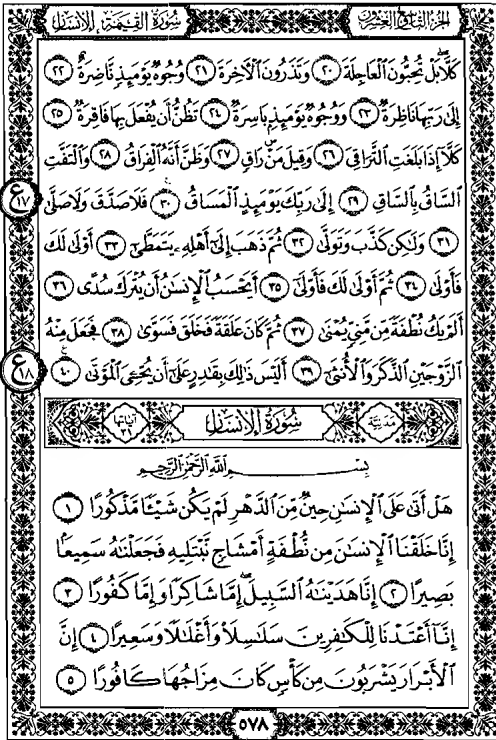 الجزء التاسع والعشرون سورة القيمة الإنسان
كَلَّا بَلْ تُحِبُّونَ ٱلْعَاجِلَةَ ٢٠ وَتَذَرُونَ ٱلْأَخِرَةَ ٢١ وُجُوهٌ يَوْمَئِذٍ نَّاضِرَةٌ ٢٢
إِلَىٰ رَبِّهَا نَاظِرَةٌ ٢٣ وَوُجُوهٌ يَوْمَئِذٍۭ بَاسِرَةٌ ٢٤ تَظُنُّ أَن يُفْعَلَ بِهَا فَاقِرَةٌ ٢٥
كَلَّآ إِذَا بَلَغَتِ ٱلتَّرَاقِيَ ٢٦ وَقِيلَ مَنْ رَاقٍ ٢٧ وَظَنَّ أَنَّهُ ٱلْفِرَاقُ ٢٨ وَٱلْتَفَّتِ
ٱلسَّاقُ بِٱلسَّاقِ ٢٩ إِلَىٰ رَبِّكَ يَوْمَئِذٍ ٱلْمَسَاقُ ٣٠ فَلَا صَدَّقَ وَلَا صَلَّىٰ ع ١٧
٣١ وَلَـٰكِن كَذَّبَ وَتَوَلَّىٰ ٣٢ ثُمَّ ذَهَبَ إِلَىٰٓ أَهْلِهِۦ يَتَمَطَّىٰٓ ٣٣ أَوْلَىٰ لَكَ
فَأَوْلَىٰ ٣٤ ثُمَّ أَوْلَىٰ لَكَ فَأَوْلَىٰٓ ٣٥ أَيَحْسَبُ ٱلْإِنسَـٰنُ أَن يُتْرَكَ سُدًى ٣٦
أَلَمْ يَكُ نُطْفَةً مِّن مَّنِىٍّ يُمْنَىٰ ٣٧ ثُمَّ كَانَ عَلَقَةً فَخَلَقَ فَسَوَّىٰ ٣٨ فَجَعَلَ مِنْهُ
ٱلزَّوْجَيْنِ ٱلذَّكَرَ وَٱلْأُنثَىٰٓ ٣٩ أَلَيْسَ ذَٰلِكَ بِقَـٰدِرٍ عَلَىٰٓ أَن يُحْـِۧىَ ٱلْمَوْتَىٰ ٤٠ ع ١٨
مدنية سُورَةُ الإنسَانِ آياتها ٣١
بِسْمِ ٱللَّهِ ٱلرَّحْمَـٰنِ ٱلرَّحِيمِ
هَلْ أَتَىٰ عَلَى ٱلْإِنسَـٰنِ حِينٌ مِّنَ ٱلدَّهْرِ لَمْ يَكُن شَيْـًٔا مَّذْكُورًا ١
إِنَّا خَلَقْنَا ٱلْإِنسَـٰنَ مِن نُّطْفَةٍ أَمْشَاجٍ نَّبْتَلِيهِ فَجَعَلْنَـٰهُ سَمِيعًۢا
بَصِيرًا ٢ إِنَّا هَدَيْنَـٰهُ ٱلسَّبِيلَ إِمَّا شَاكِرًا وَإِمَّا كَفُورًا ٣
إِنَّآ أَعْتَدْنَا لِلْكَـٰفِرِينَ سَلَـٰسِلَا۟ وَأَغْلَـٰلًا وَسَعِيرًا ٤ إِنَّ
ٱلْأَبْرَارَ يَشْرَبُونَ مِن كَأْسٍ كَانَ مِزَاجُهَا كَافُورًا ٥
٥٧٨